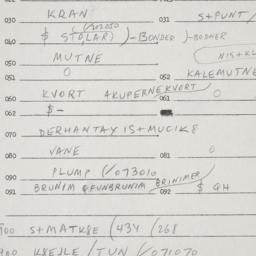 030 KRAN 031 S+PUNT/
040 $ STOLAR)-BONDER)-BODNER
MUTNE
050
051 0 052 KALEMUTNE
060 KVORT AKUPERNEKVORT 061 0
062 $-
070 DERHANTAY IS+MUCIK8
080 VANE 081 0
090 PLUMP (/073010
091 BRUNIM QFUNBRUNIM BRINIMER) 092 $ QH
S+MATK8E /434 /268
K8EJLE /TUN (/071070